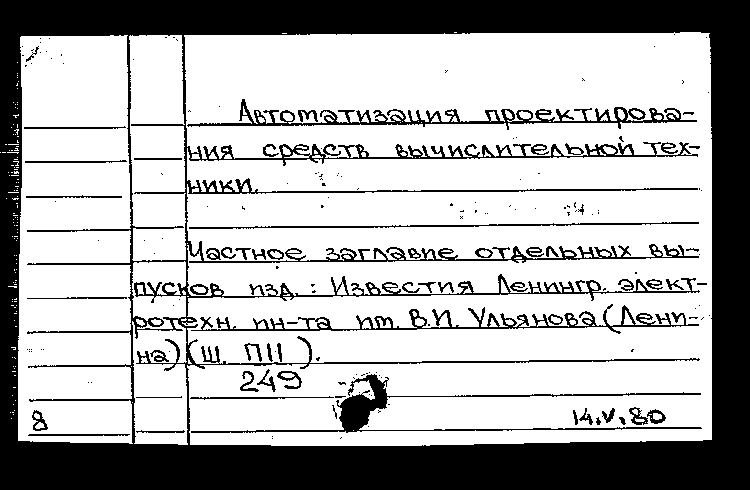 Автоматизация проектирова-
ния средств вычислительной тех-
ники.
Частное заглавие отдельных вы-
пусков изд.: Известия Ленингр. элект-
ротехн. ин-та им. В.И. Ульянова (Лени-
на) (Ш. П11 ).
249
8 14.V.80